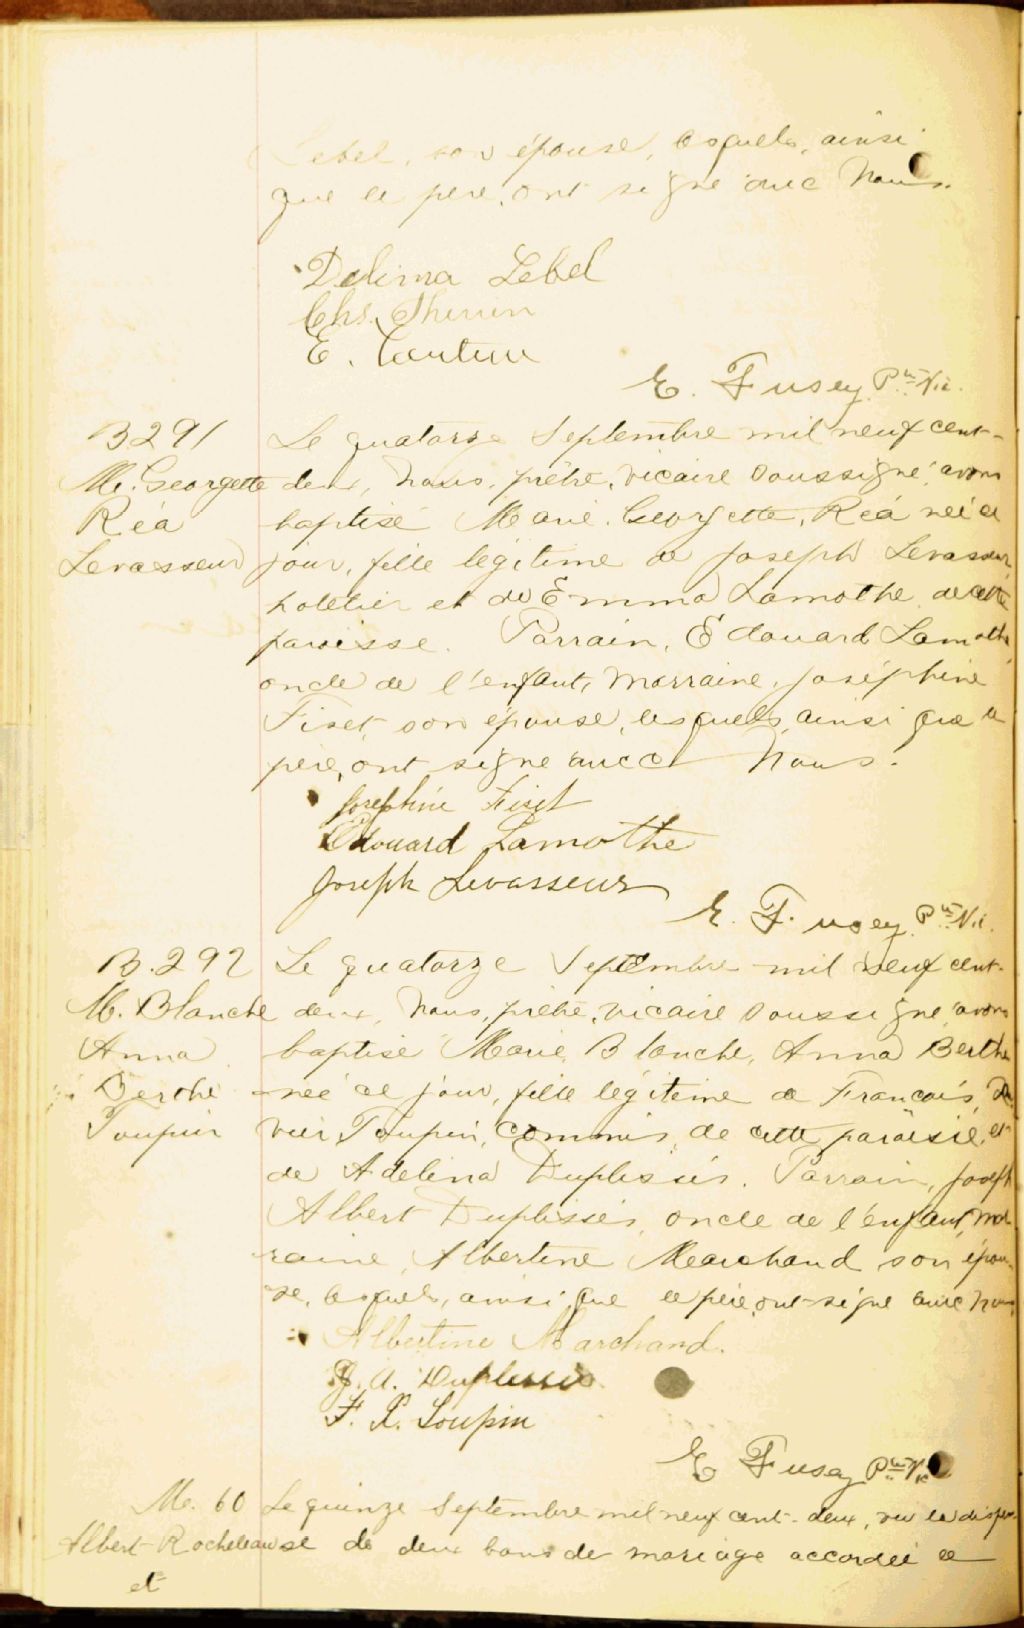 Lebel, son épouse, lesquels, ainsi
que le père, ont signé avec Nous.
Delima Lebel
Chs. Therrien
E. Couture
E. Fusey Ptre Vic.
B 291
Me. Georgette
Réa
Levasseur
Le quatorze Septembre mil neuf cent-
deux, Nous, prêtre, vicaire soussigné, avons
baptisé Marie, Georgette, Réa née ce
jour, fille légitime de Joseph Levasseur
hôtelier et de Emma Lamothe de cette
paroisse. Parrain, Edouard Lamothe
oncle de l'enfant, marraine, Joséphine
Fiset, son épouse, lesquels, ainsi que le
père, ont signé avec Nous.
Josephine Fiset
Edouard Lamothe
Joseph Levasseur
E. Fusey Ptre Vic.
B. 292
M. Blanche
Anna
Berthe
Toupin
Le quatorze Septembre mil neuf cent-
deux, Nous, prêtre, vicaire soussigné, avons
baptisé Marie, Blanche, Anna Berthe
née ce jour, fille légitime de François,
vier Toupin, commis, de cette paroisse, et
de Adelina Duplessis. Parrain, Joseph
Albert Duplessis, oncle de l'enfant, mar
raine, Albertine Marchand son épou-
se, lesquels, ainsi que le père, ont signé avec Nous.
Albertine Marchand.
J. A. Duplessis
F. X. Toupin
E Fusey Ptre Vic
M. 60
Albert Rocheleau
et
Le quinze Septembre mil neuf cent-deux, vu la dispen-
se de deux bans de mariage accordée